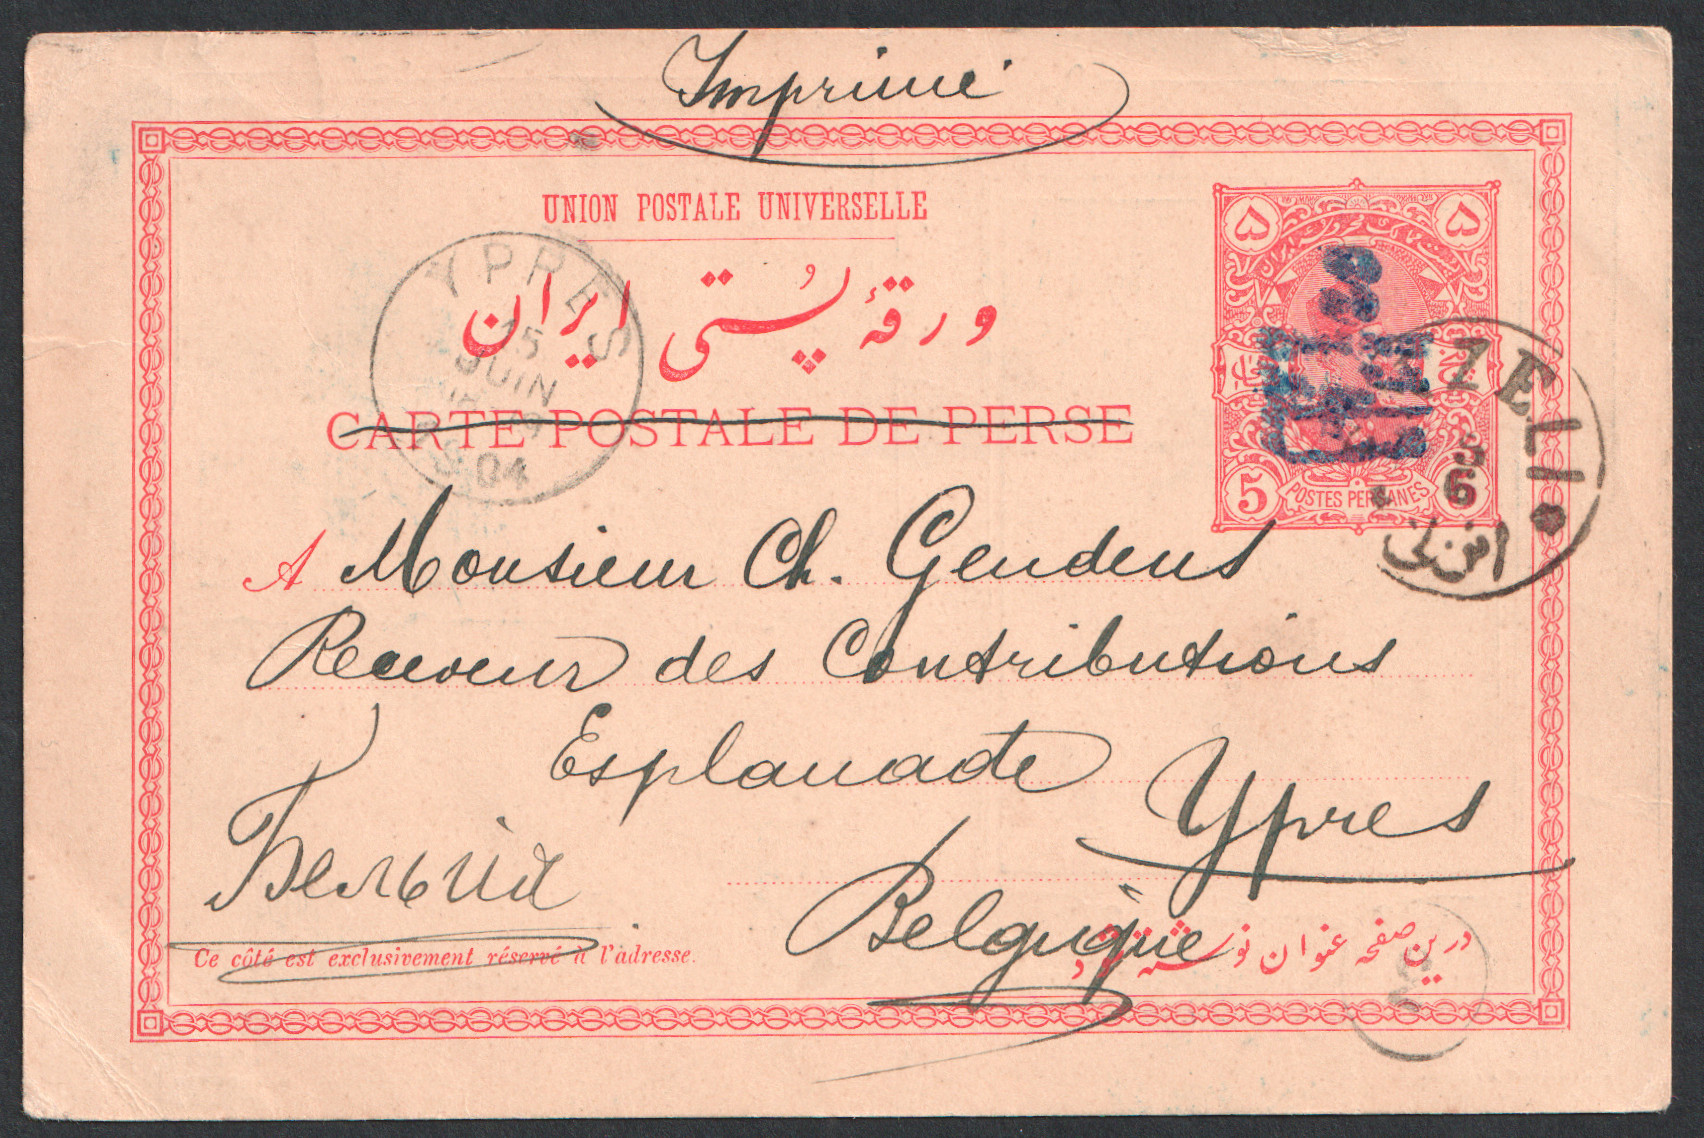 Imprimé
UNION POSTALE UNIVERSELLE
ورقهٔ پُستی ایران
CARTE POSTALE DE PERSE
YPRES
15
JUIN
1904
۵ ۵
5 POSTES PERSANES
ZELI
5
6
انزلی
A Monsieur Ch. Gendens
Receveur des Contributions
Esplanade
Ypres
Бельгія
Belgique
Ce côté est exclusivement réservé à l'adresse.
درین صفحه عنوان نوشته شود